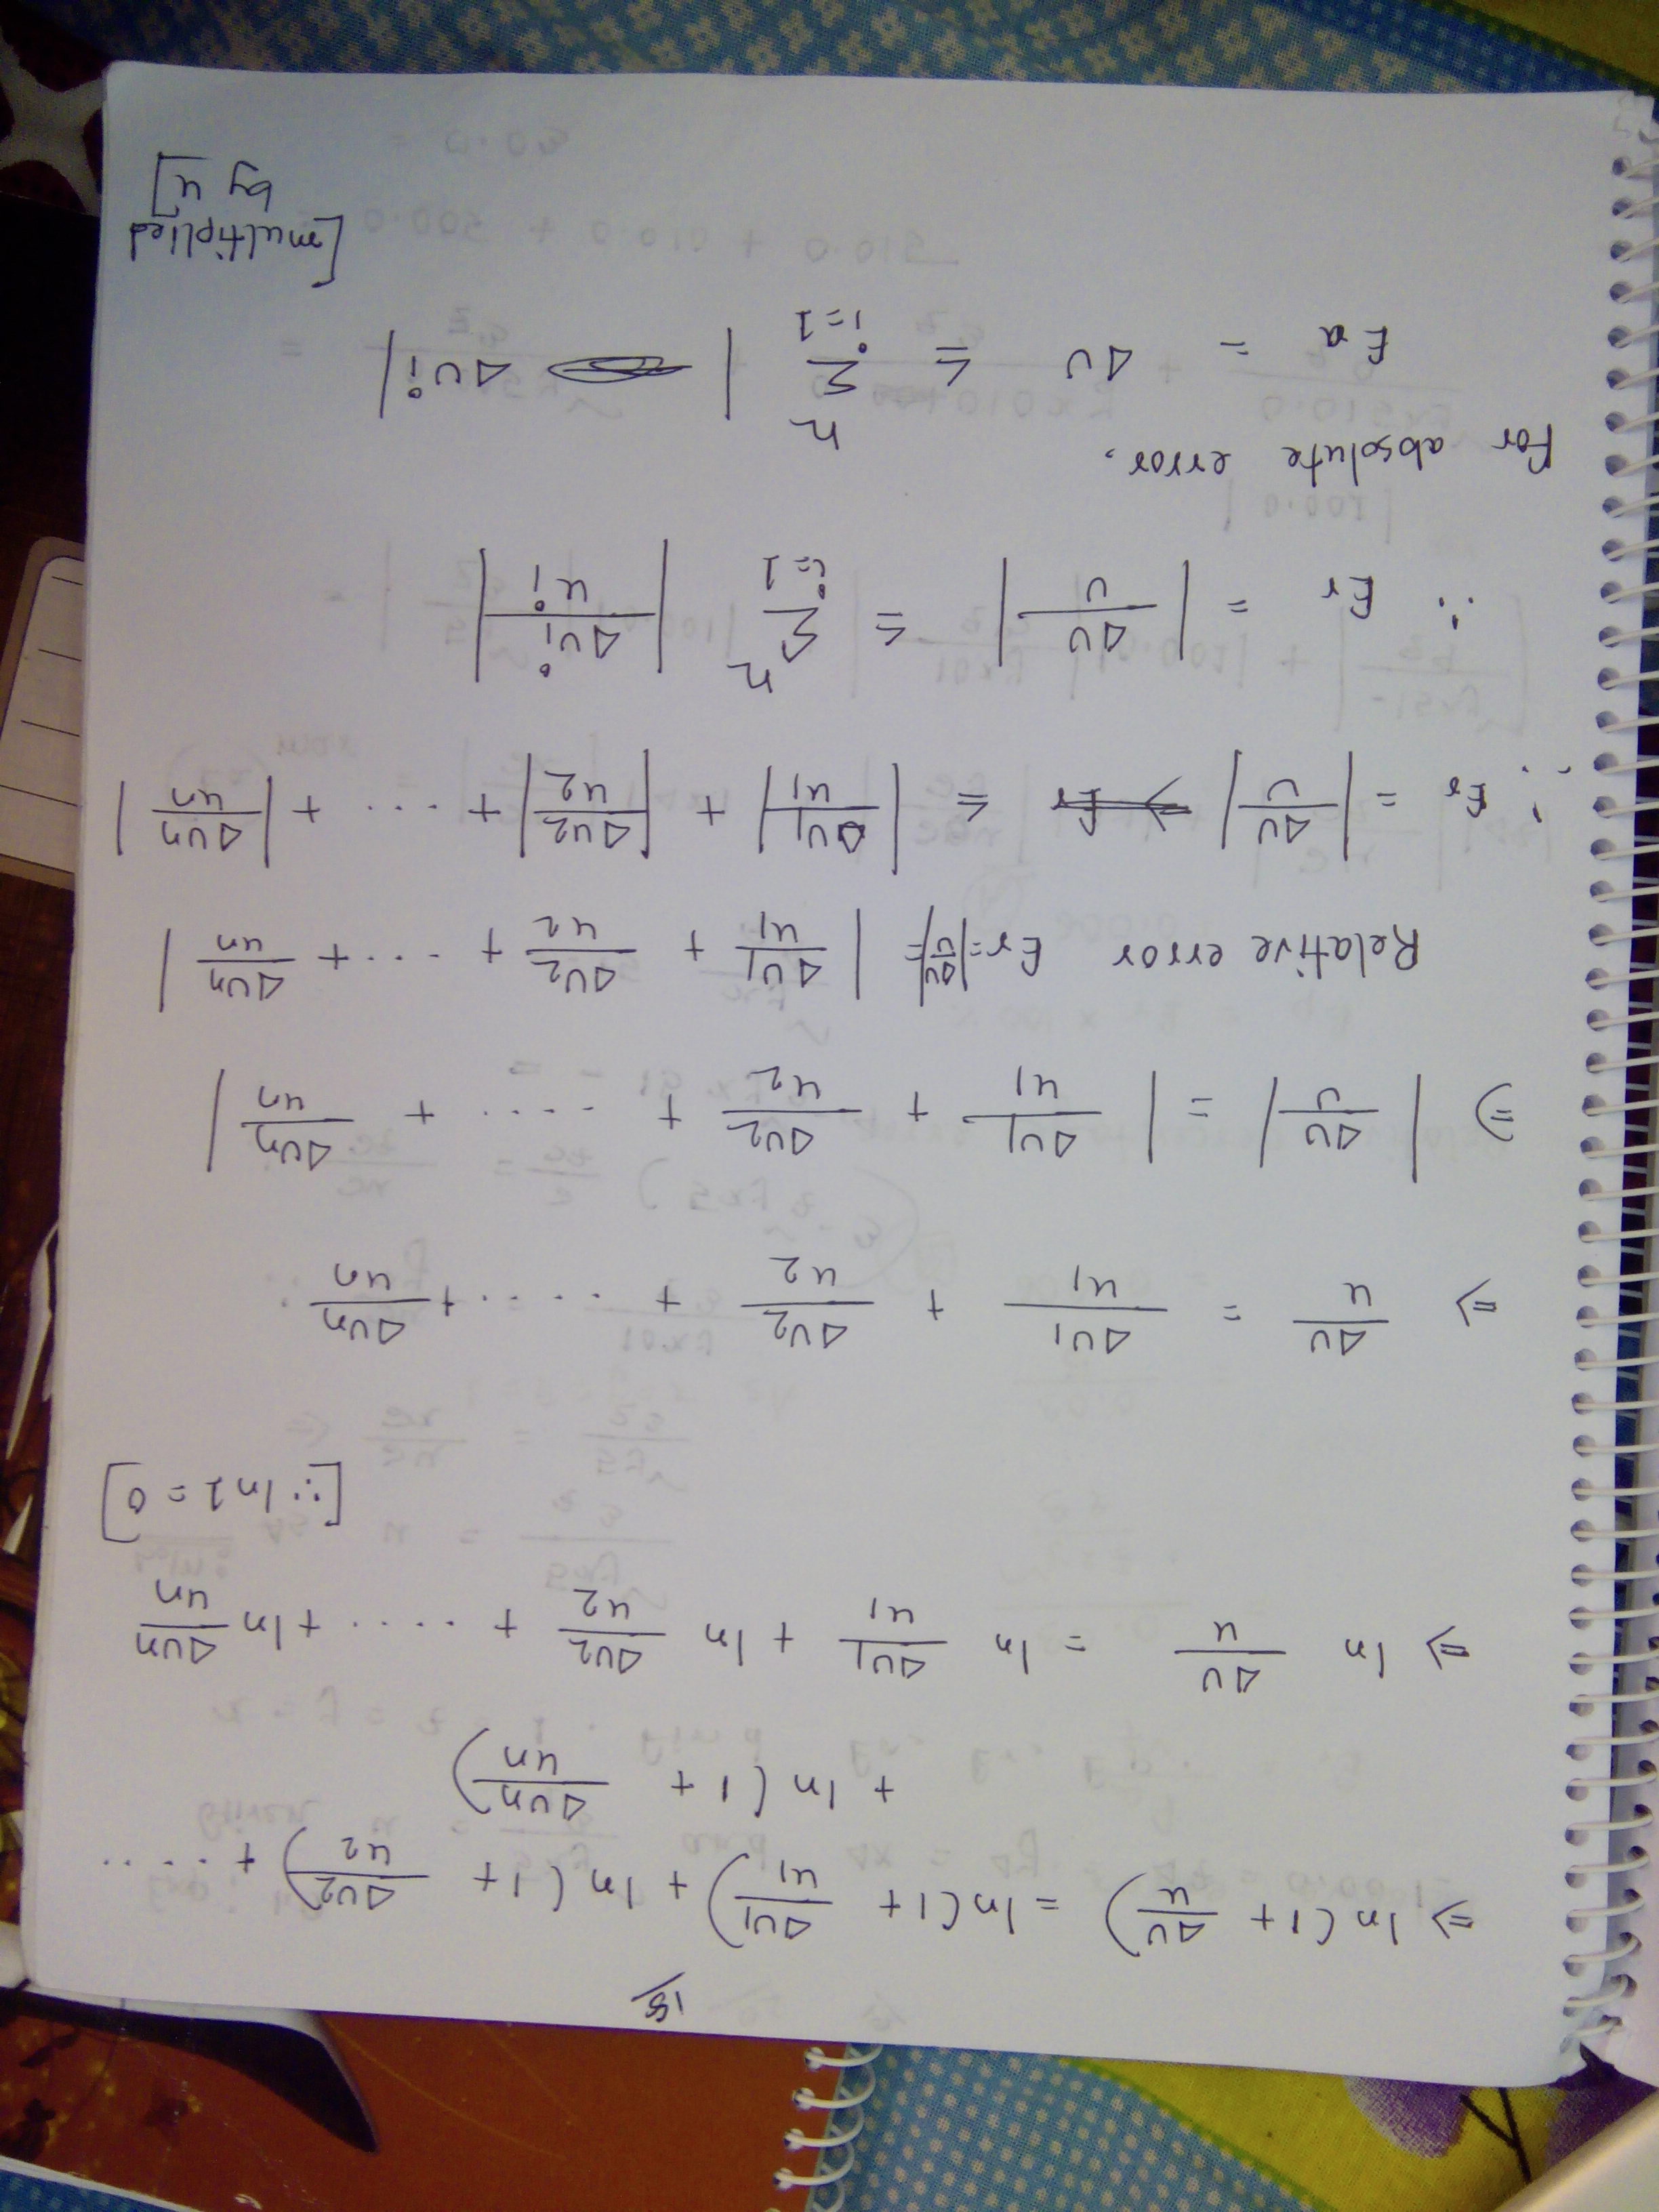 15
⇒ ln (1 + Δu/u) = ln (1 + Δu1/u1) + ln (1 + Δu2/u2) + .....
+ ln (1 + Δun/un)
⇒ ln Δu/u = ln Δu1/u1 + ln Δu2/u2 + ..... + ln Δun/un
[∵ ln 1 = 0]
⇒ Δu/u = Δu1/u1 + Δu2/u2 + ..... + Δun/un
⇒ |Δu/u| = |Δu1/u1 + Δu2/u2 + ..... + Δun/un|
Relative error Er = |Δu/u| = |Δu1/u1 + Δu2/u2 + .... + Δun/un|
∴ Er = |Δu/u| ≤ |Δu1/u1| + |Δu2/u2| + .... + |Δun/un|
∴ Er = |Δu/u| ≤ n Σ i=1 |Δui/ui|
For absolute error,
Ea = Δu ≤ n Σ i=1 |Δui|
[multiplied
by u]